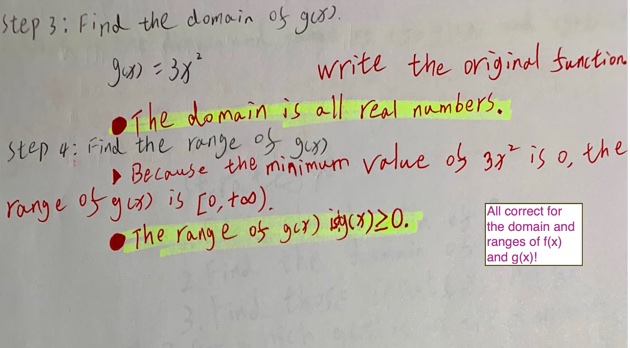 Step 3: Find the domain of g(x).
g(x) = 3x²
write the original function.
● The domain is all real numbers.
Step 4: Find the range of g(x)
▸ Because the minimum value of 3x² is 0, the
range of g(x) is [0, +∞).
● The range of g(x) is g(x) ≥ 0.
All correct for
the domain and
ranges of f(x)
and g(x)!
2. Find the
3. Find those